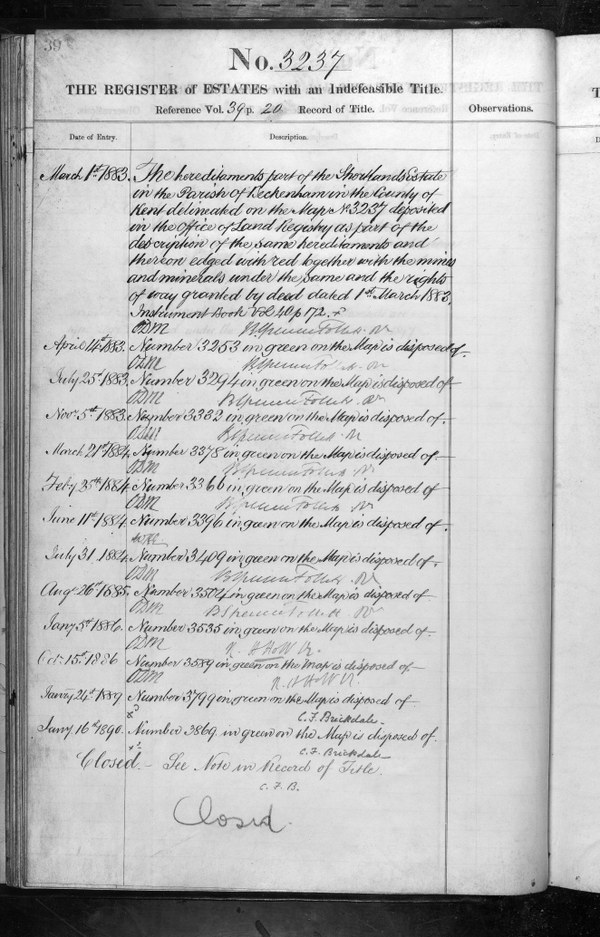 39
No. 3237
THE REGISTER of ESTATES with an Indefeasible Title.
Reference Vol. 39 p. 20 Record of Title.
Observations.
Date of Entry.
Description.
March 1st 1883. The hereditaments part of the Shortlands Estate
in the Parish of Beckenham in the County of
Kent delineated on the Map No. 3237 deposited
in the Office of Land Registry as part of the
description of the same hereditaments and
thereon edged with red together with the mines
and minerals under the same and the rights
of way granted by deed dated 1st March 1883.
Instrument Book Vol. 40 p 172.
ODM B Spencer Follett
April 14th 1883. Number 3253 in green on the Map is disposed of.
ODM B Spencer Follett
July 25th 1883. Number 3294 in green on the Map is disposed of
ODM B Spencer Follett
Novr. 5th 1883. Number 3332 in green on the Map is disposed of.
ODM B Spencer Follett
March 21st 1884. Number 3378 in green on the Map is disposed of.
ODM B Spencer Follett
Feby 25th 1884. Number 3366 in green on the Map is disposed of
ODM B Spencer Follett
June 11th 1884. Number 3396 in green on the Map is disposed of.
July 31 1884. Number 3409 in green on the Map is disposed of.
ODM B Spencer Follett
Augt 26th 1885. Number 3504 in green on the Map is disposed of.
ODM B Spencer Follett
Jany 5th 1886. Number 3535 in green on the Map is disposed of.
ODM R. H Holt
Oct. 15th 1886 Number 3589 in green on the Map is disposed of.
ODM R. H Holt
Janry 24th 1889 Number 3799 in green on the Map is disposed of
C. F. Brickdale
Jany 16th 1890. Number 3869 in green on the Map is disposed of.
C. F. Brickdale
Closed. - See Note in Record of Title.
C. F. B.
Closed.